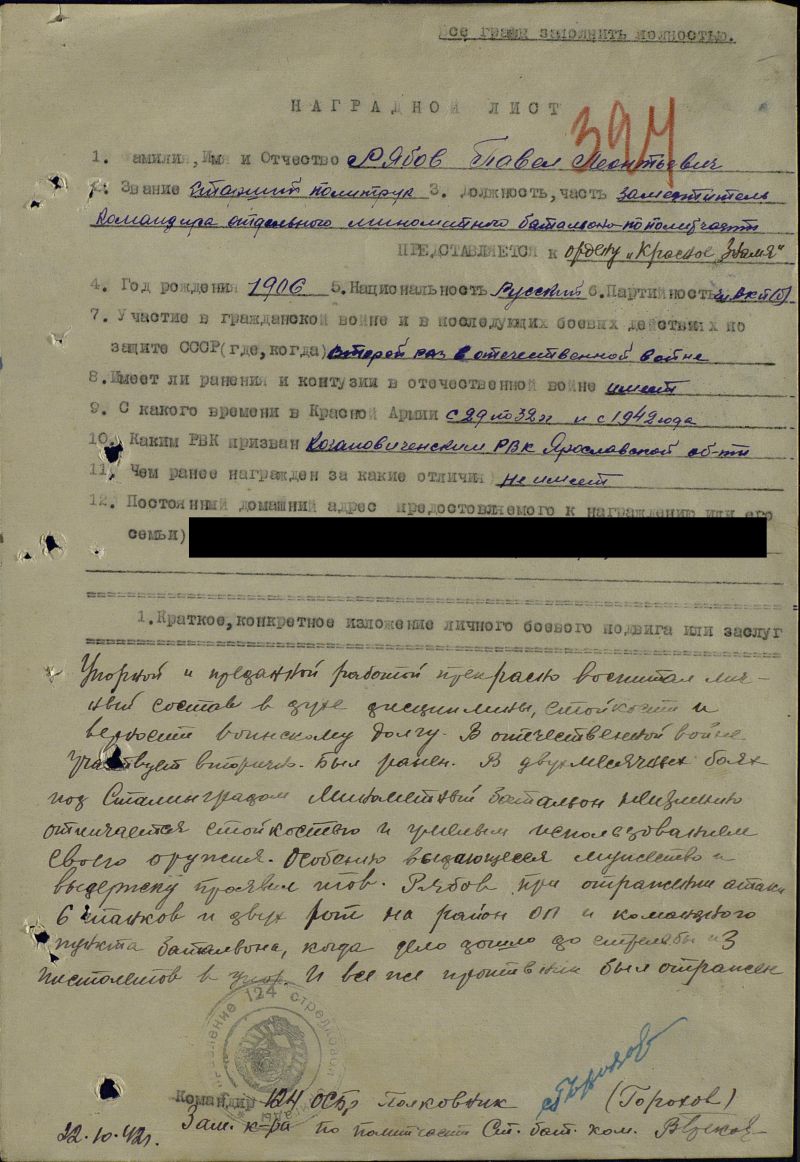 Все графы заполнить полностью.
НАГРАДНОЙ ЛИСТ
394
1. Фамилия, Имя и Отчество Рябов Павел Леонтьевич
2. Звание Старший политрук 3. Должность, часть заместитель
Командира отдельного минометного батальона по политчасти
ПРЕДСТАВЛЯЕТСЯ к ордену „Красное Знамя"
4. Год рождения 1906 5. Национальность Русский 6. Партийность чл. ВКП(б)
7. Участие в гражданской войне и в последующих боевых действиях по
защите СССР (где, когда) второй раз в отечественной войне
8. Имеет ли ранения и контузии в отечественной войне имеет
9. С какого времени в Красной Армии с 29 по 32 г и с 1942 года
10. Каким РВК призван Кагановиченским РВК Ярославской об-ти
11. Чем ранее награжден за какие отличия не имеет
12. Постоянный домашний адрес предоставляемого к награждению или его
семьи)
1. Краткое, конкретное изложение личного боевого подвига или заслуг
Упорной и преданной работой прекрасно воспитал лич-
ный состав в духе дисциплины, стойкости и
верности воинскому долгу. В отечественной войне
участвует вторично. Был ранен. В двухмесячных боях
под Сталинградом Минометный батальон неизменно
отличается стойкостью и умелым использованием
своего оружия. Особенно выдающееся мужество и
выдержку проявил тов. Рябов при отражении атаки
6 танков и двух рот на район ОП и командного
пункта батальона, когда дело дошло до стрельбы из
пистолетов в упор. И все же противник был отражен
124 стрелковая
Командир 124 ОСБр Полковник (Горохов)
Горохов
Зам. к-ра по политчасти Ст. бат. ком.
22.10.42г.